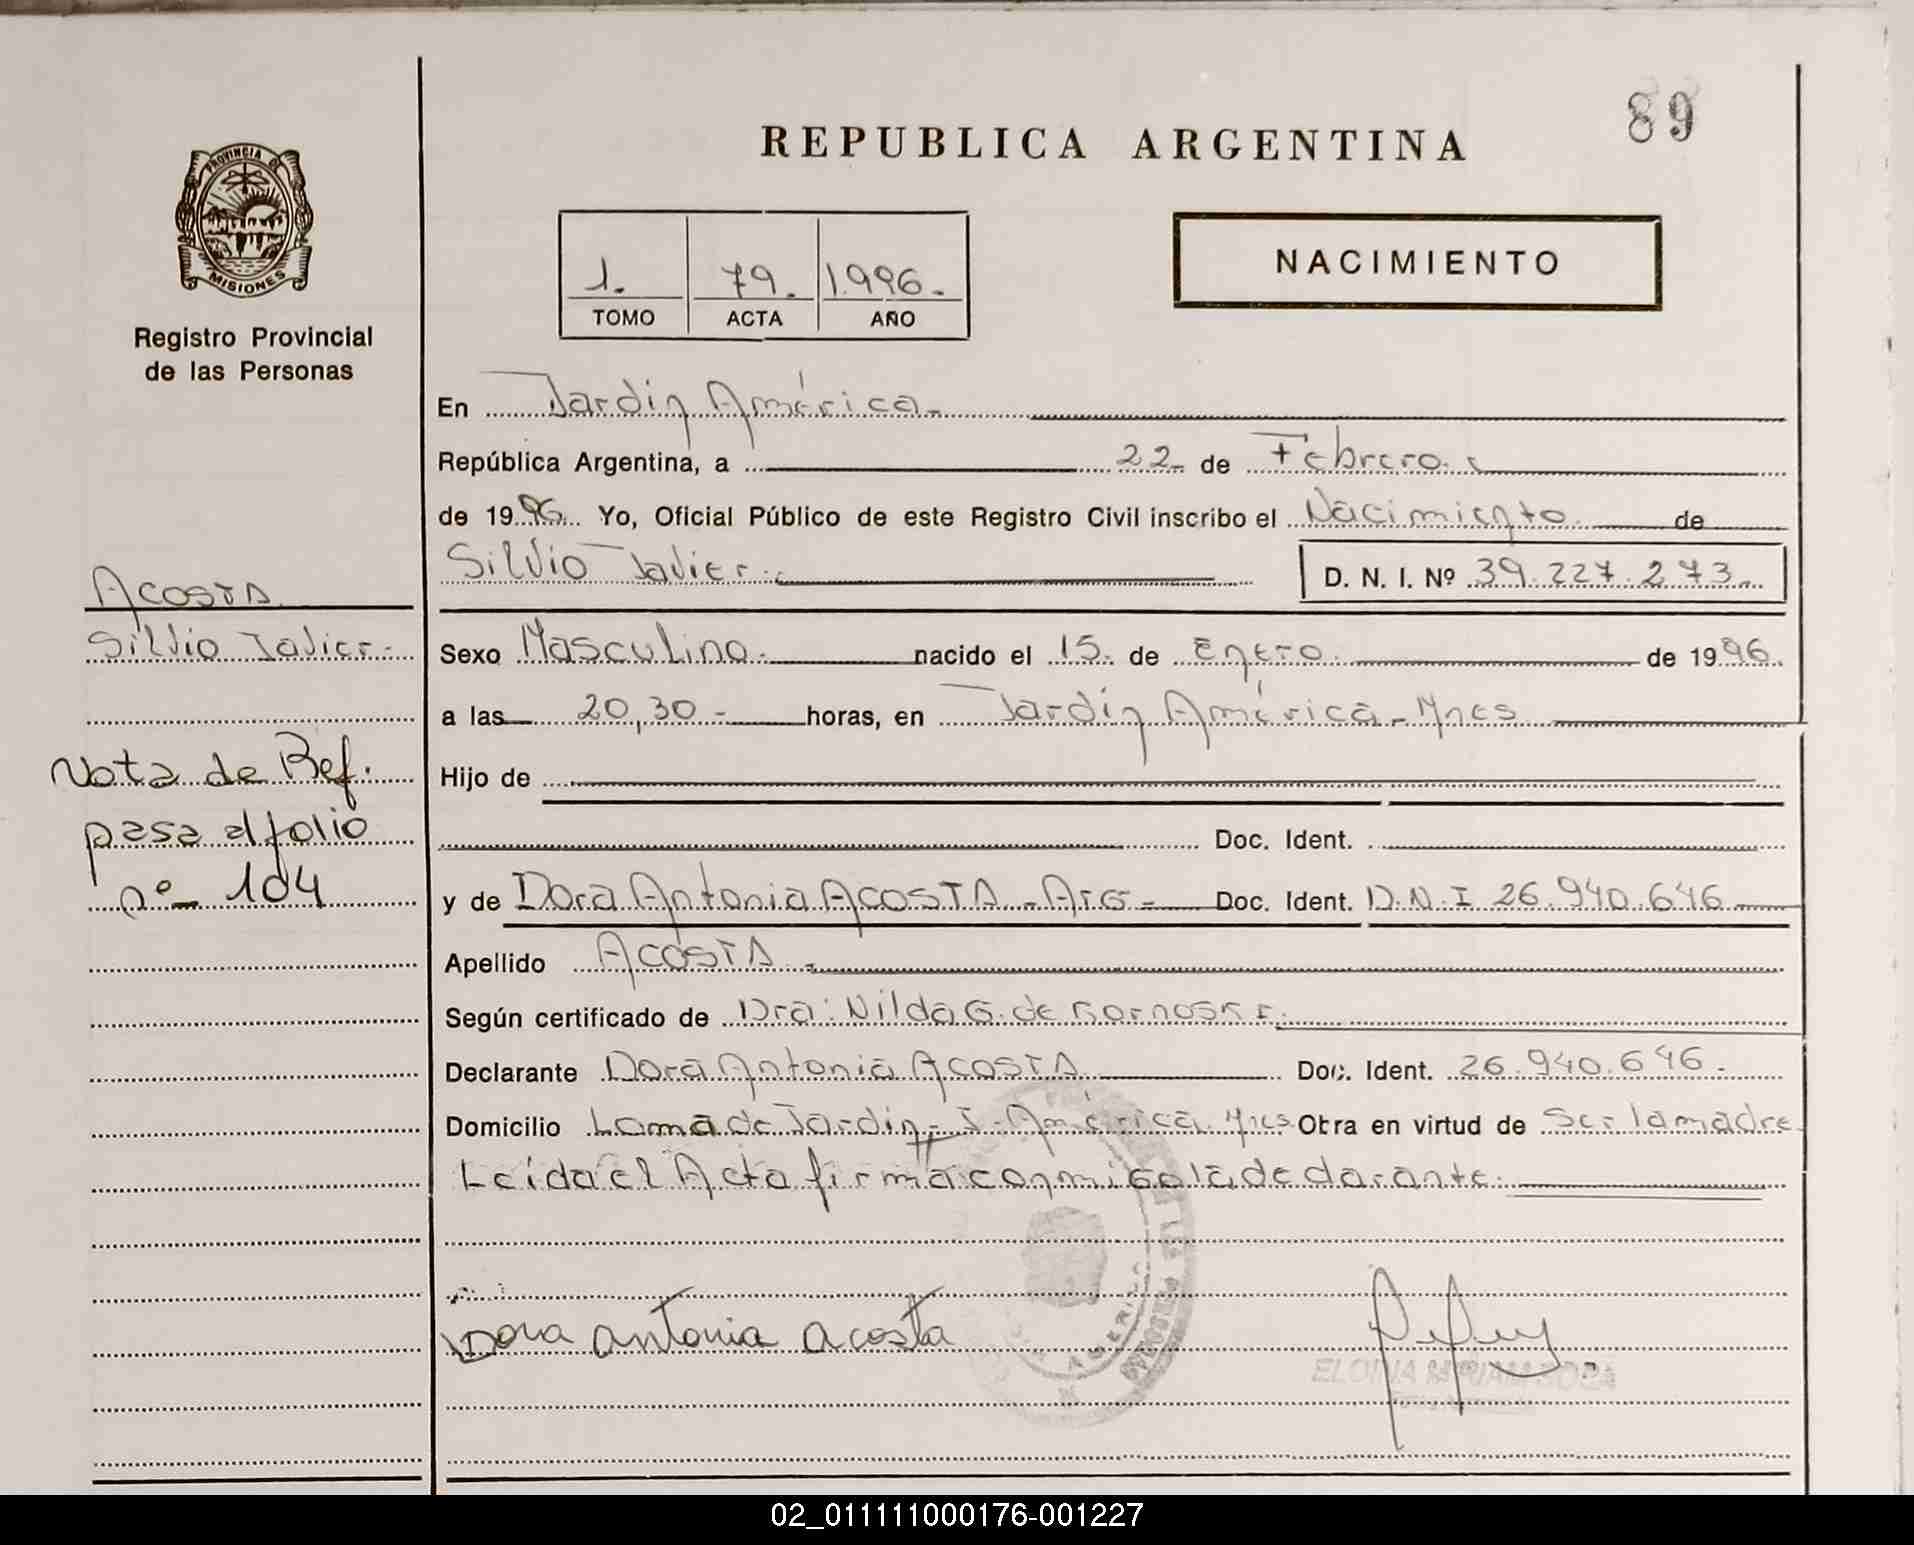 89
REPUBLICA ARGENTINA
PROVINCIA DE
MISIONES
Registro Provincial
de las Personas
1. 79. 1.996.-
TOMO ACTA AÑO
NACIMIENTO
En Jardín América.-
República Argentina, a 22- de Febrero.
de 1996. Yo, Oficial Público de este Registro Civil inscribo el Nacimiento de
Silvio Javier.- D. N. I. Nº 39.227.273-
ACOSTA
Silvio Javier.-
Nota de Ref.
pasa al folio
nº- 104
Sexo Masculino.- nacido el 15. de Enero. de 1996.
a las 20,30- horas, en Jardín América-Mnes
Hijo de
Doc. Ident.
y de Dora Antonia ACOSTA-Arg- Doc. Ident. D.N.I 26.940.646-
Apellido ACOSTA.-
Según certificado de Dra: Nilda G. de
Declarante Dora Antonia ACOSTA Doc. Ident. 26.940.646-
Domicilio Loma de Jardín-J-América.Mnes Otra en virtud de Ser la madre
Leída el Acta firma conmigo la declarante.
Dora Antonia Acosta
ELODIA MIRIAM
AMERICA
02_011111000176-001227